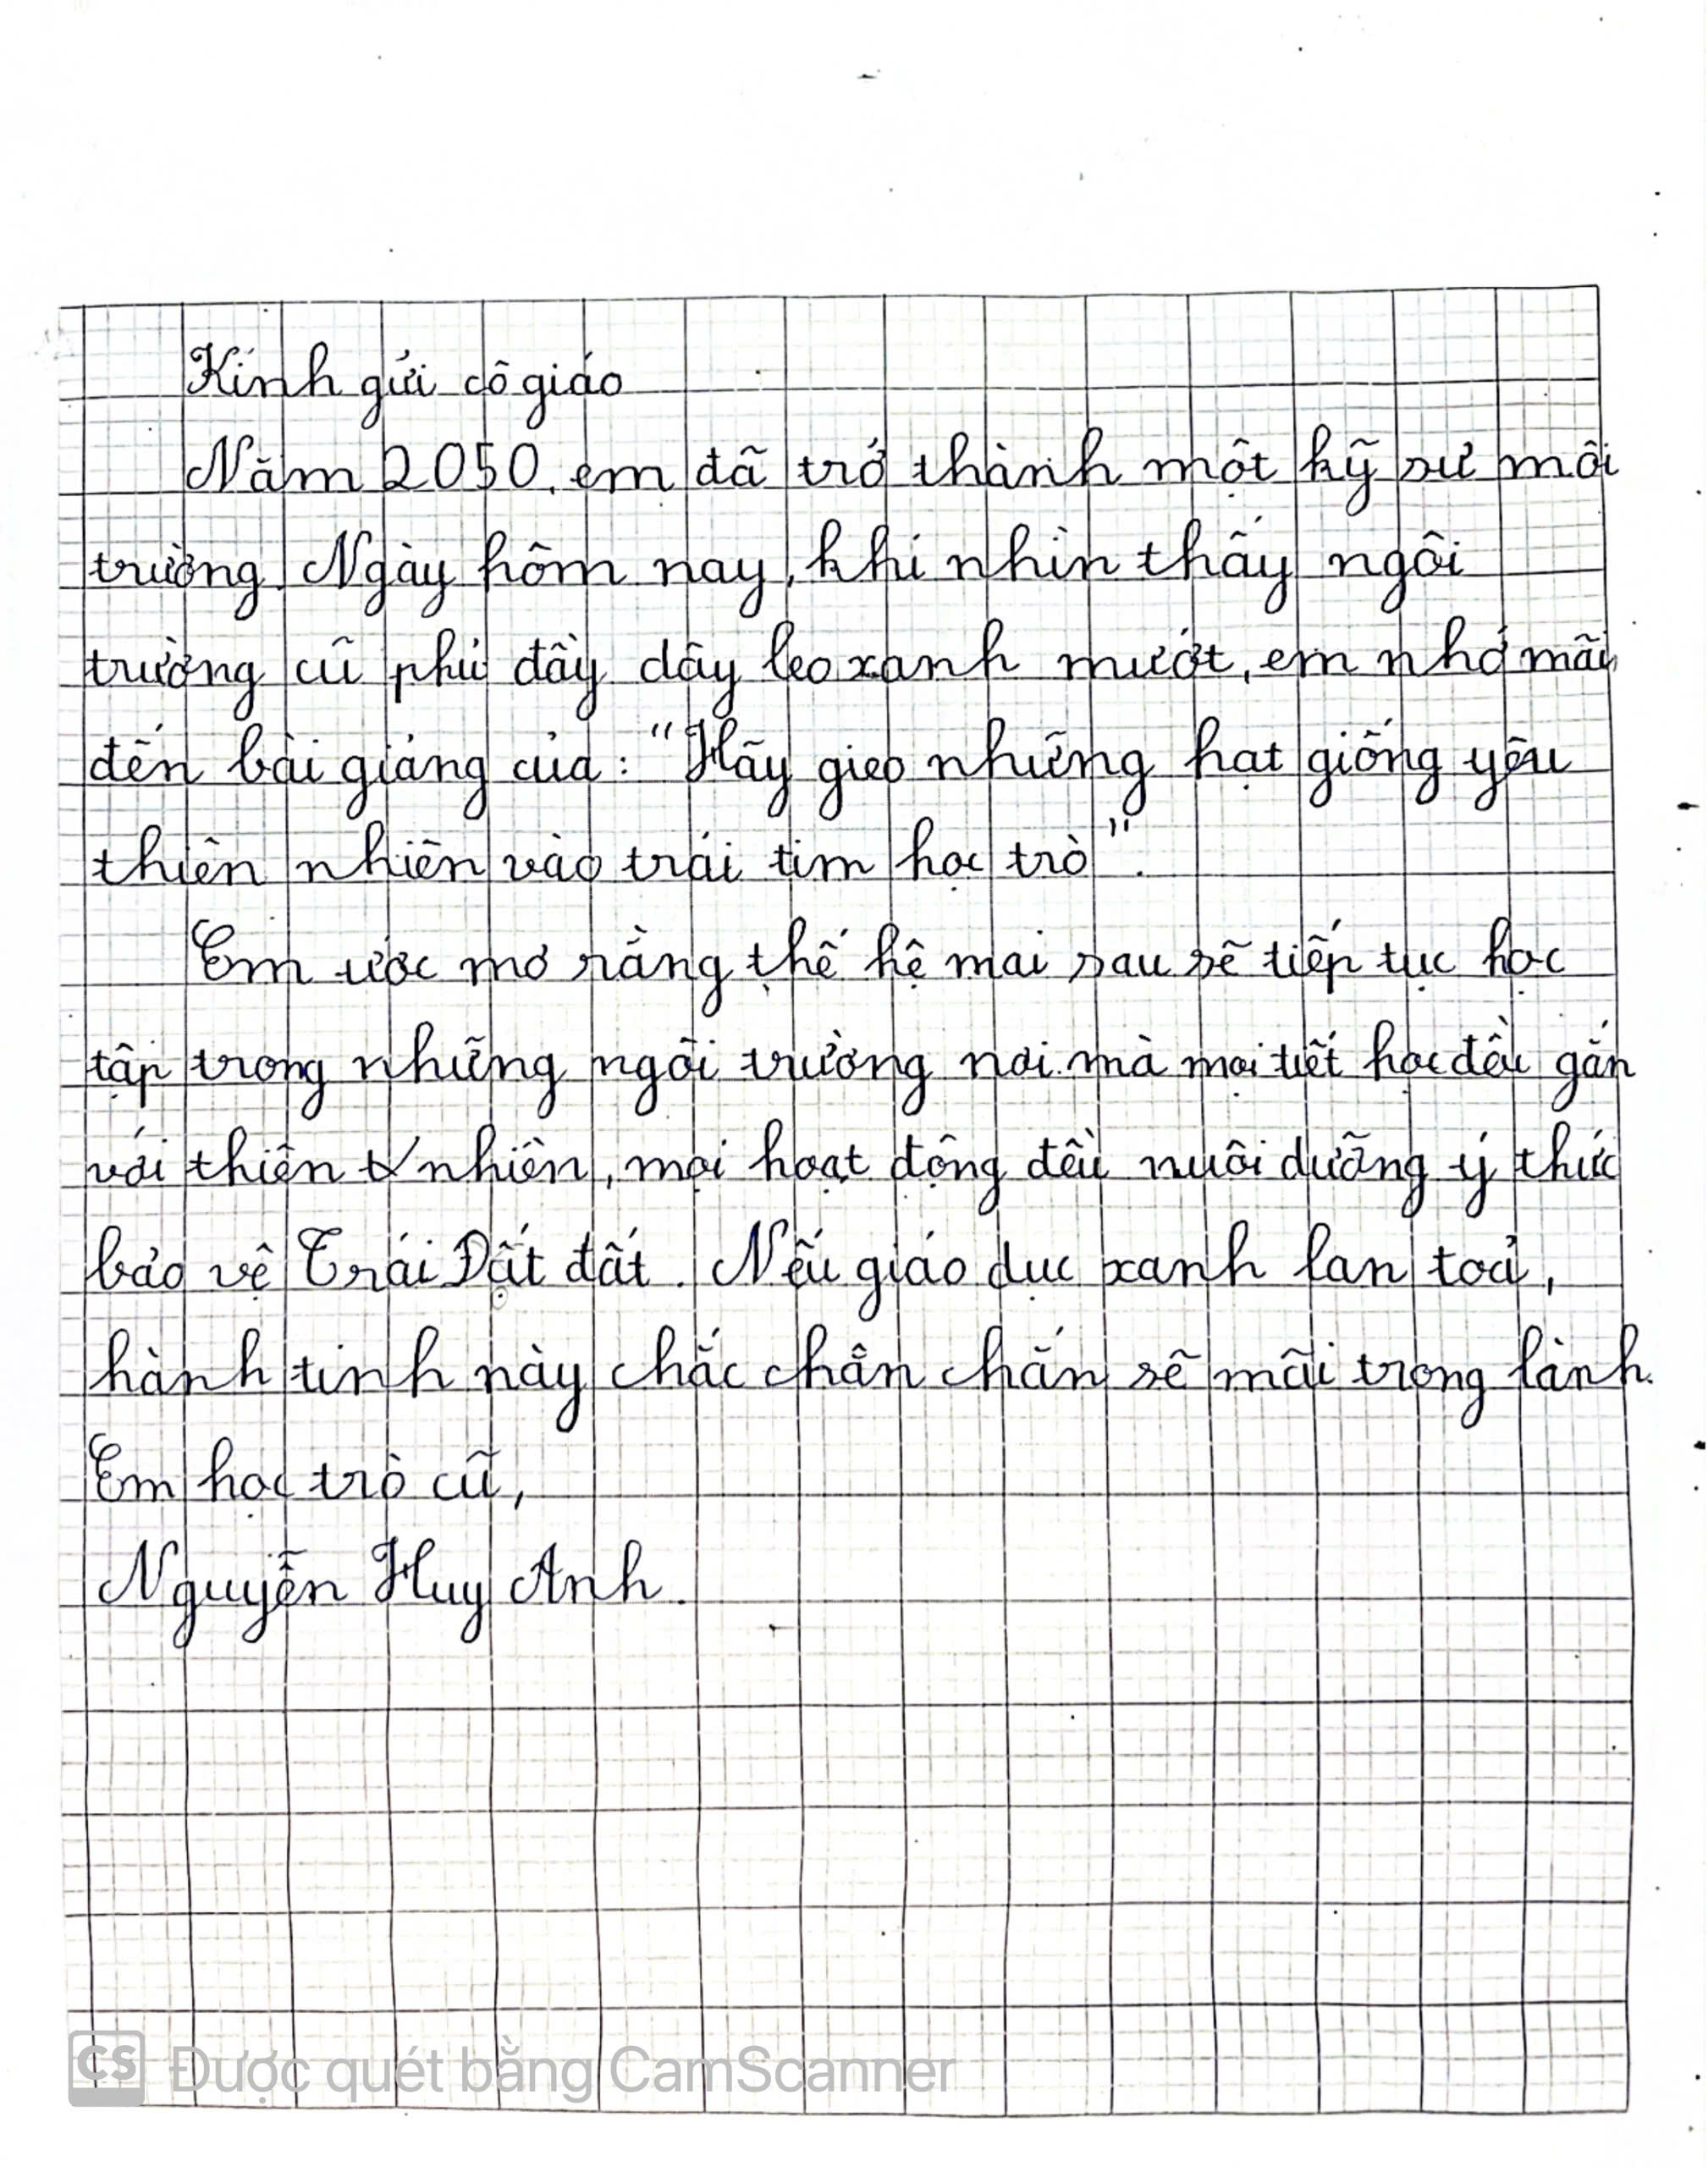 Kính gửi cô giáo
Năm 2050, em đã trở thành một kỹ sư môi
trường. Ngày hôm nay, khi nhìn thấy ngôi
trường cũ phủ đầy dây leo xanh mướt, em nhớ mãi
đến bài giảng của: "Hãy gieo những hạt giống yêu
thiên nhiên vào trái tim học trò".
Em ước mơ rằng thế hệ mai sau sẽ tiếp tục học
tập trong những ngôi trường nơi mà mọi tiết học đều gắn
với thiên nhiên, mọi hoạt động đều nuôi dưỡng ý thức
bảo vệ Trái Đất đất. Nếu giáo dục xanh lan toả,
hành tinh này chắc chân chắn sẽ mãi trong lành.
Em học trò cũ,
Nguyễn Huy Anh.
CS Được quét bằng CamScanner